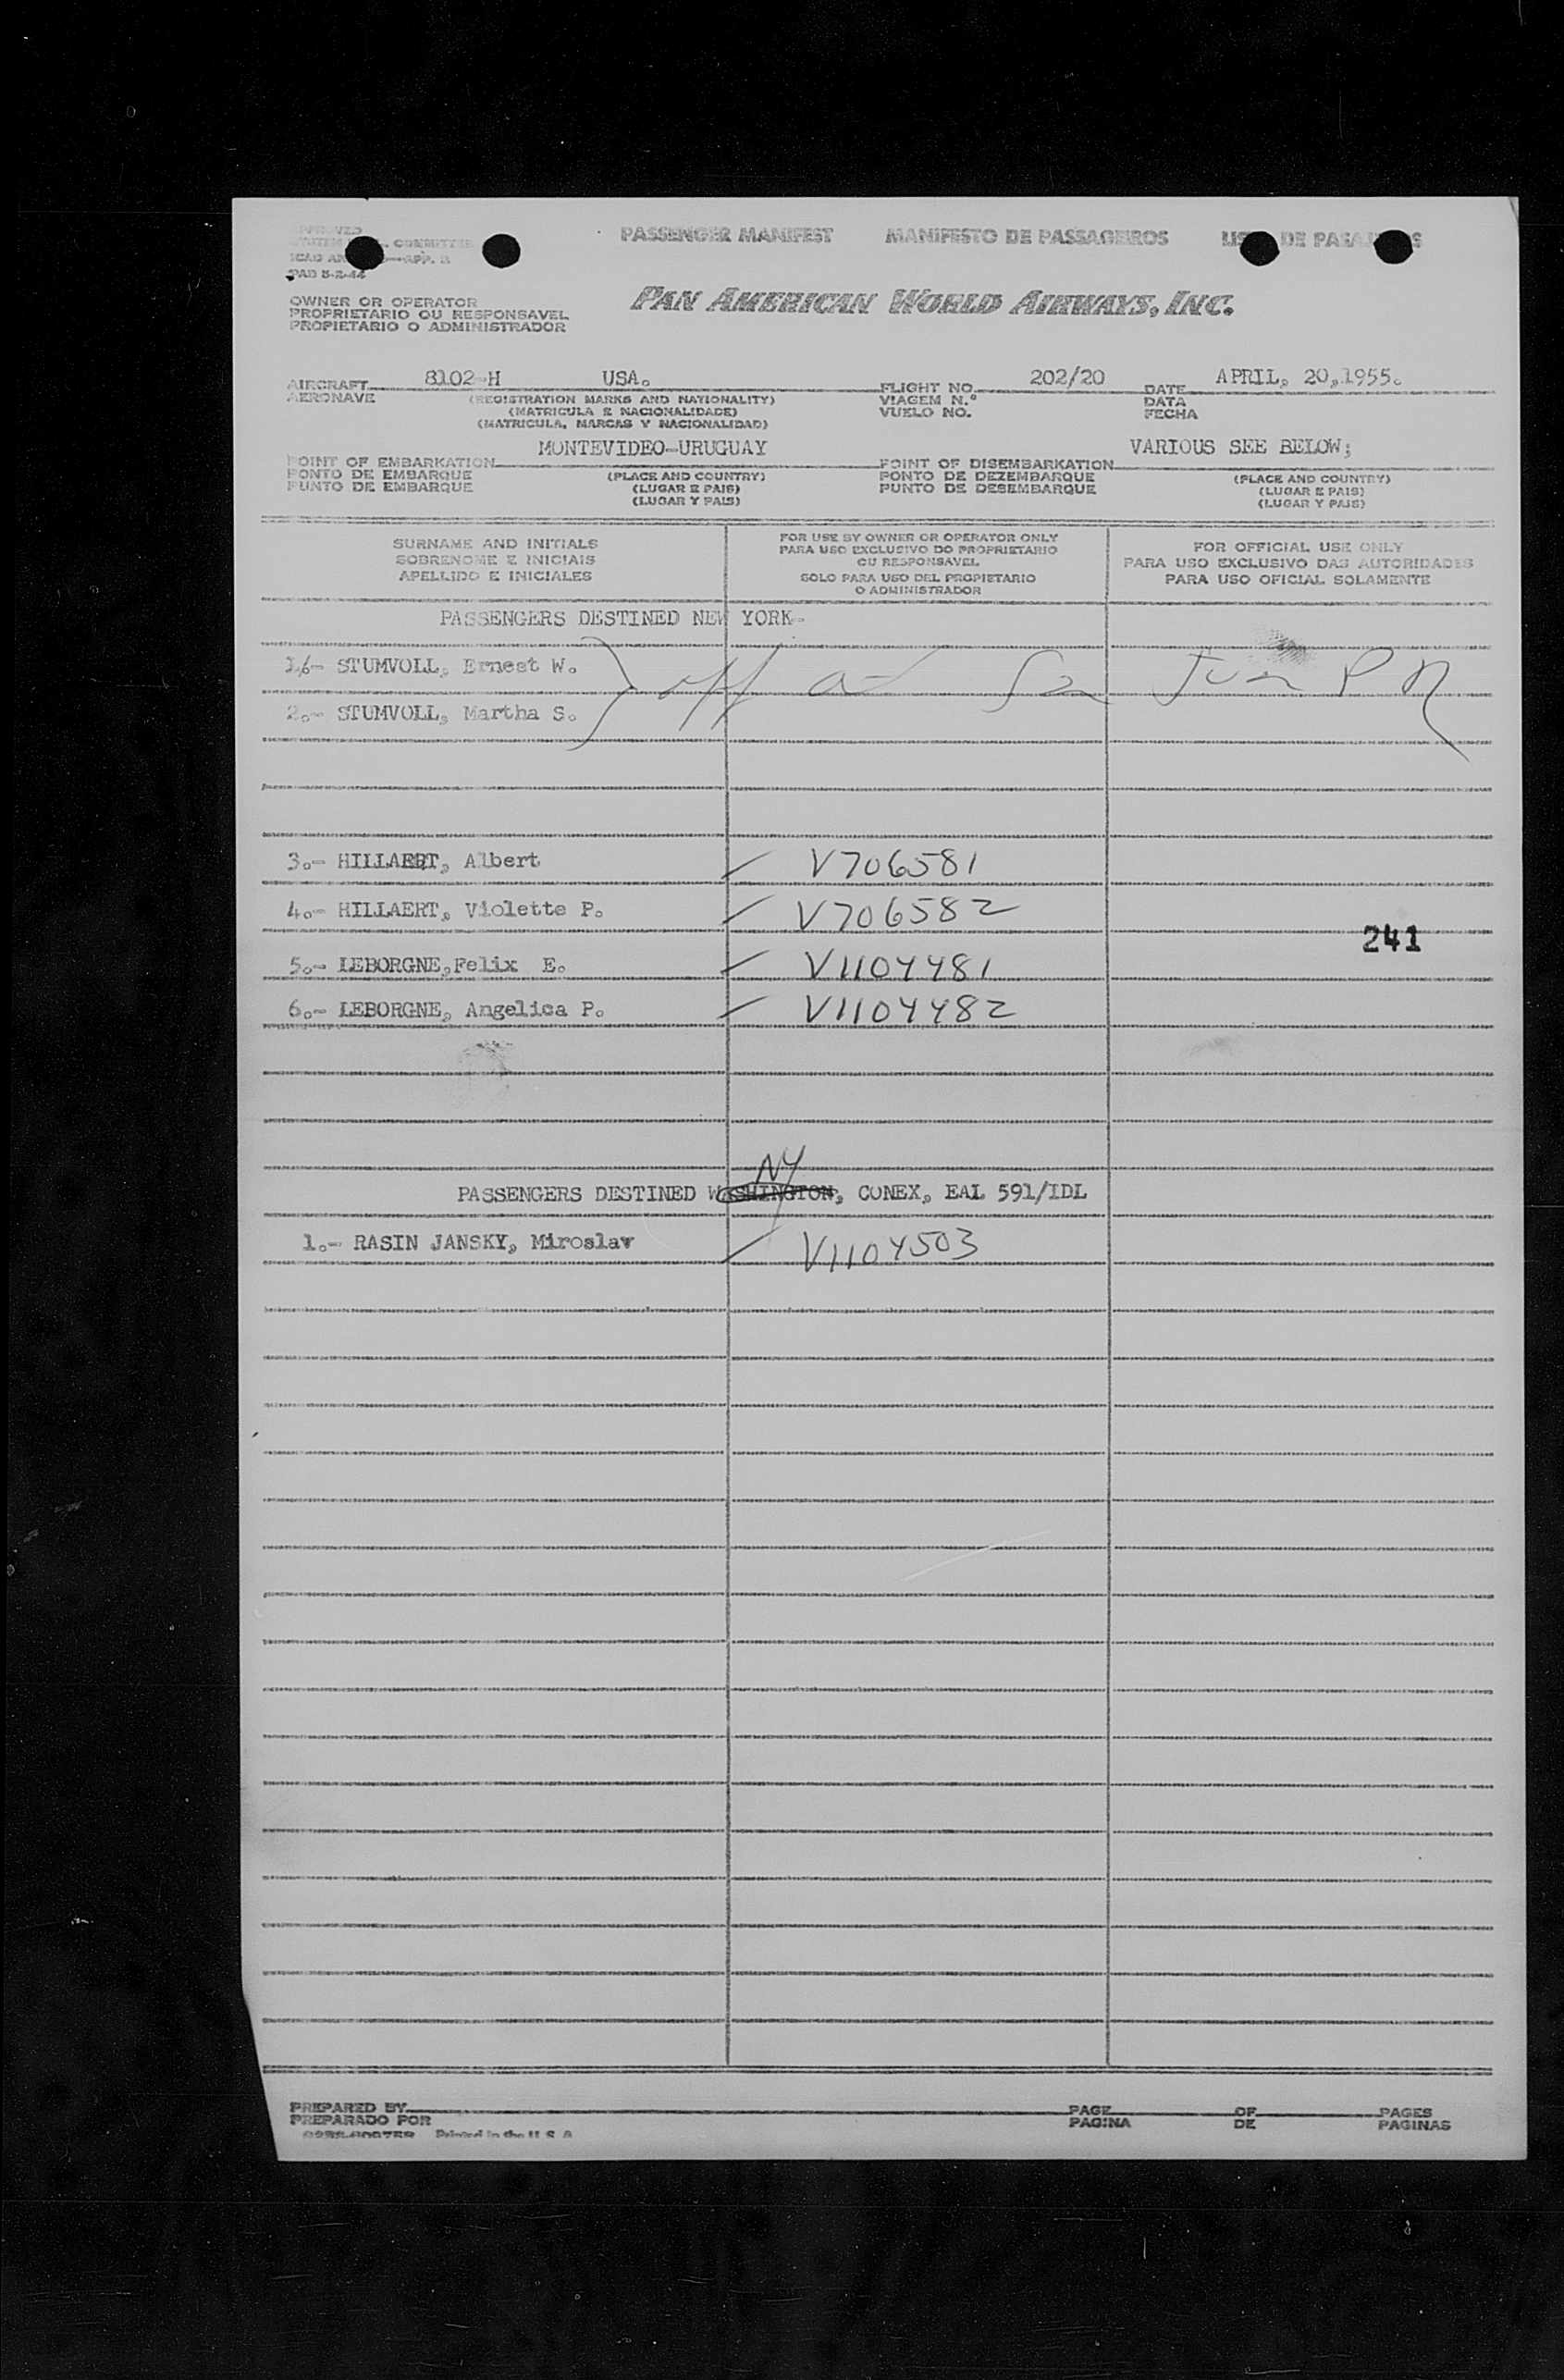 PASSENGER MANIFEST MANIFESTO DE PASSAGEIROS DE
APP.
PAB 5-2-44
OWNER OR OPERATOR
PROPRIETARIO OU RESPONSAVEL
PROPIETARIO O ADMINISTRADOR
PAN AMERICAN WORLD AIRWAYS, INC.
AIRCRAFT 8102-H USA. FLIGHT NO. 202/20 DATE APRIL, 20,1955.
AERONAVE (REGISTRATION MARKS AND NATIONALITY) VIAGEM N.º DATA
(MATRICULA E NACIONALIDADE) VUELO NO. FECHA
(MATRICULA, MARCAS Y NACIONALIDAD)
POINT OF EMBARKATION MONTEVIDEO-URUGUAY POINT OF DISEMBARKATION VARIOUS SEE BELOW;
PONTO DE EMBARQUE (PLACE AND COUNTRY) PONTO DE DEZEMBARQUE (PLACE AND COUNTRY)
PUNTO DE EMBARQUE (LUGAR E PAIS) PUNTO DE DESEMBARQUE (LUGAR E PAIS)
(LUGAR Y PAIS) (LUGAR Y PAIS)
SURNAME AND INITIALS
SOBRENOME E INICIAIS
APELLIDO E INICIALES
FOR USE BY OWNER OR OPERATOR ONLY
PARA USO EXCLUSIVO DO PROPRIETARIO
OU RESPONSAVEL
SOLO PARA USO DEL PROPIETARIO
O ADMINISTRADOR
FOR OFFICIAL USE ONLY
PARA USO EXCLUSIVO DAS AUTORIDADES
PARA USO OFICIAL SOLAMENTE
PASSENGERS DESTINED NEW YORK-
STUMVOLL, Ernest W. off at San Juan P R
2.- STUMVOLL, Martha S.
3.- HILLAERT, Albert V706581
4.- HILLAERT, Violette P. V706582
241
5.- LEBORGNE, Felix E. V1104481
6.- LEBORGNE, Angelica P. V1104482
NY
PASSENGERS DESTINED WASHINGTON, CONEX, EAL 591/IDL
1.- RASIN JANSKY, Miroslav V1104503
PREPARED BY PAGE OF PAGES
PREPARADO POR PAGINA DE PAGINAS
Printed in the U.S.A.